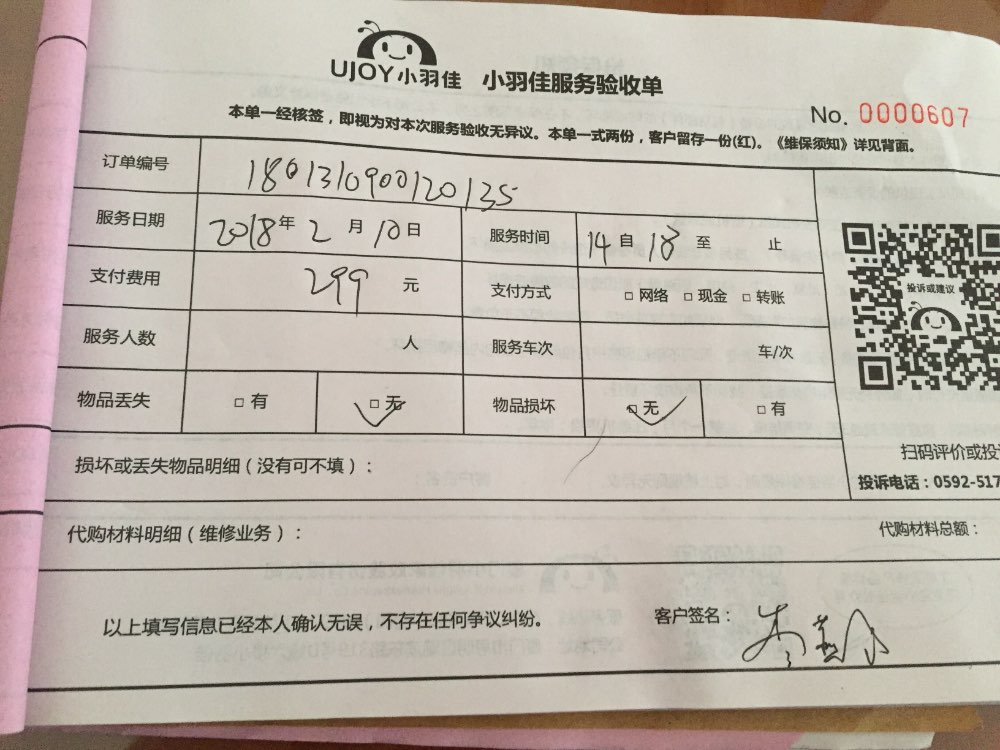 UJOY小羽佳 小羽佳服务验收单
No. 0000607
本单一经核签，即视为对本次服务验收无异议。本单一式两份，客户留存一份(红)。《维保须知》详见背面。
订单编号 180131090012035
服务日期 2018年 2 月 10日 服务时间 14 自 18 至 止
支付费用 299 元 支付方式 □ 网络 □ 现金 □ 转账
服务人数 人 服务车次 车/次
物品丢失 □ 有 □ 无 物品损坏 □ 无 □ 有
投诉或建议
扫码评价或投
投诉电话：0592-517
损坏或丢失物品明细（没有可不填）：
代购材料明细（维修业务）： 代购材料总额：
以上填写信息已经本人确认无误，不存在任何争议纠纷。 客户签名：